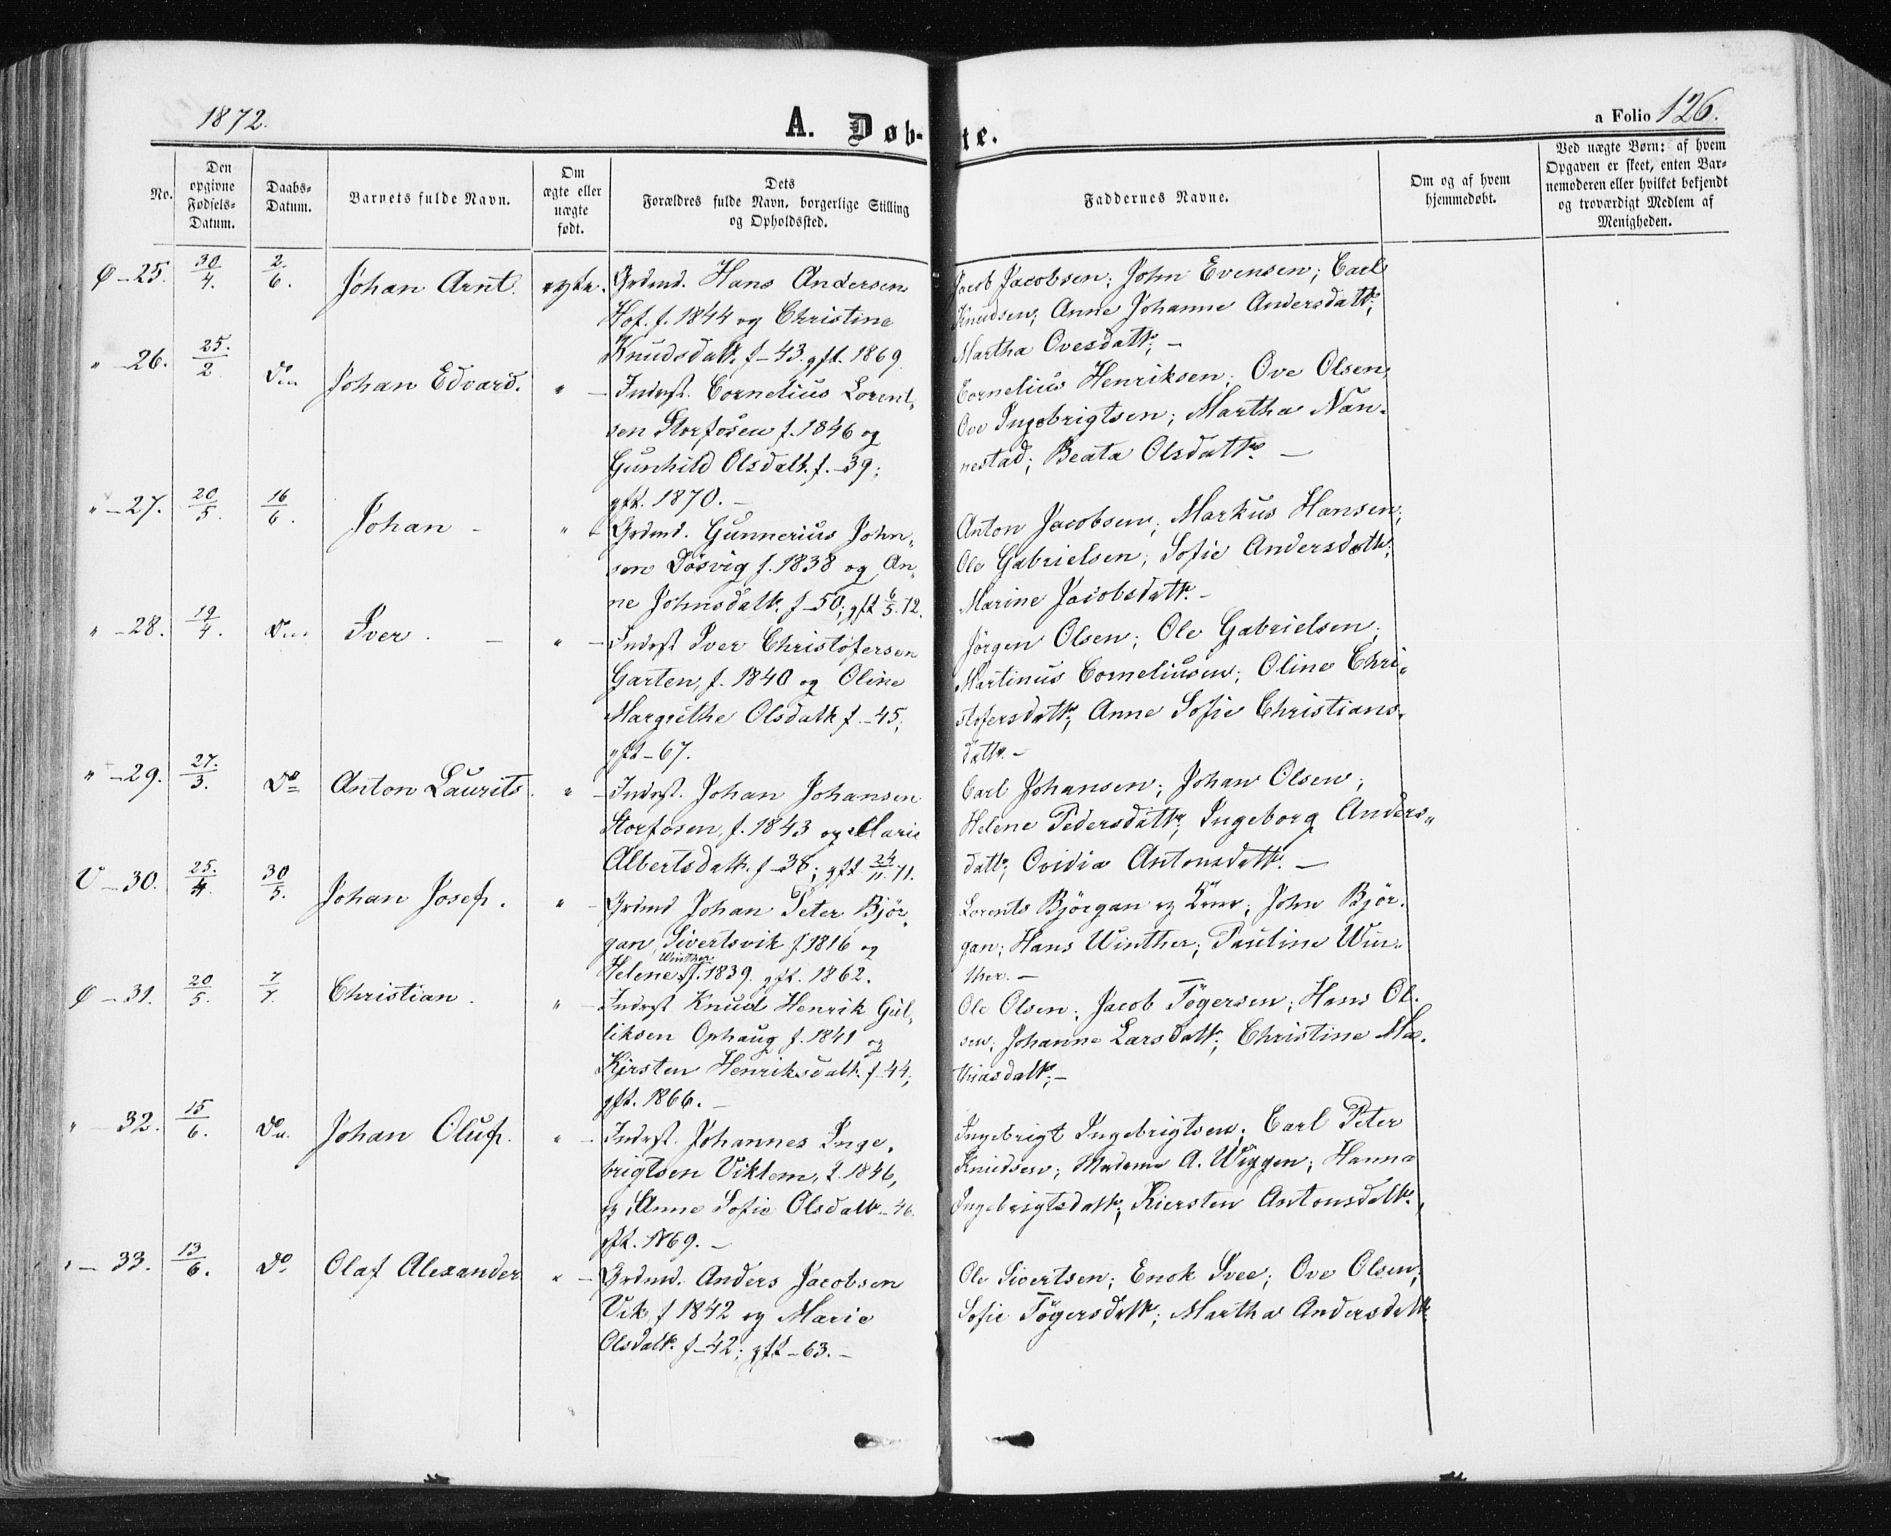 1872.
A. Døb-te.
a Folio 126.
No.
Den opgivne Fødsels-Datum.
Daabs-Datum.
Barnets fulde Navn.
Om ægte eller uægte født.
Dets Forældres fulde Navn, borgerlige Stilling og Opholdssted.
Faddernes Navne.
Om og af hvem hjemmedøbt.
Ved uægte Børn: af hvem Opgaven er skeet, enten Barnemoderen eller hvilket bekjendt og troværdigt Medlem af Menigheden.
Ø - 25. 30/4. 2/6. Johan Arnt. ægte. Grdmd. Hans Andersen
Hof. f. 1844 og Christine
Knudsdatt. f - 43. gft. 1869
Jacob Jacobsen; John Evensen; Carl
Knudsen; Anne Johanne Andersdatt;
Martha Ovesdatt; -
" - 26. 25./2 Do Johan Edvard. " - Inderst. Cornelius Lorent,
sen Storfosen f. 1846 og
Gunhild Olsdatt. f. - 39;
gft. 1870. -
Cornelius Henriksen; Ove Olsen,
Ove Ingebrigtsen; Martha Nan-
nestad; Beata Olsdatt. -
" - 27. 20/5. 16/6. Johan - " - Grdmd. Gunnerius John,
sen Døsvig f. 1838 og An,
ne Johnsdatt. f - 50; gft 6/5. 72.
Anton Jacobsen; Markus Hansen;
Ole Gabrielsen; Sofie Andersdatt;
Marine Jacobsdatt. -
" - 28. 19/4. Do Iver. - " - Inderst Iver Christofersen
Garten, f. 1840 og Oline
Margrethe Olsdatt f - 45;
gft - 67.
Jørgen Olsen; Ole Gabrielsen;
Martinus Corneliusen; Oline Chri-
stofersdatt; Anne Sofie Christians-
datt. -
" - 29. 27./3. Do Anton Laurits. " - Inderst. Johan Johansen
Storfosen, f. 1843 og Marie
Albertsdatt. f - 38; gft 24/11. 71.
Carl Johansen; Johan Olsen;
Helene Pedersdatt; Ingeborg Anders,,
datt; Ovidia Antonsdatt. -
V - 30. 25./4. 30/5. Johan Josef. " - Grdmd Johan Peter Bjør,
gan, Sivertsvik f. 1816 og
Helene Winther f. 1839. gft. 1862.
Lorents Bjørgan og Kone; John Bjør-
gan; Hans Winther; Pauline Win-
ther. -
Ø - 31. 20/5. 7/7. Christian. " - Inderst Knud Henrik Gul,
liksen Ophaug f. 1841 og
Kjersten Henriksdatt. f - 44;
gft. 1866. -
Ole Olsen; Jacob Tøgersen; Hans Ol-
sen; Johanne Larsdatt; Christine Ma-
thiasdatt; -
" - 32. 15/6. Do Johan Oluf. " - Inderst. Johannes Inge,
brigtsen Viklem, f. 1846,
og Anne Sofie Olsdatt - 46.
gft. 1869. -
Ingebrigt Ingebrigtsen; Carl Peter
Knudsen; Madame A. Wiggen; Hanna
Ingebrigtsdatt; Kiersten Antonsdatt.
" - 33. 13/6. Do Olaf Alexander " - Grdmd. Anders Jacobsen
Vik f 1842 og Marie
Olsdatt. f - 42; gft - 63. -
Ole Sivertsen; Enok Svee; Ove Olsen;
Sofie Tøgersdatt; Martha Andersdatt.